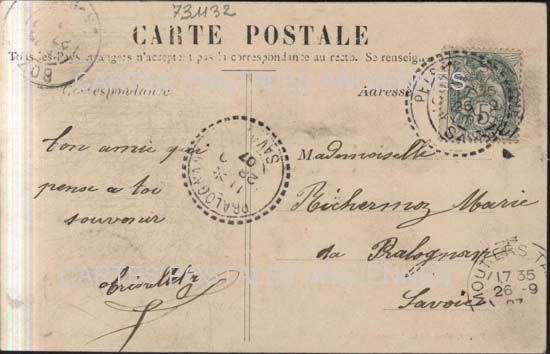 731132
CARTE POSTALE
Tous les Pays étrangers n'acceptent pas la correspondance au recto. Se renseign
CARTES POSTALES ANCIENNES
Correspondance
Adresse
5
PRALOGNAN
SAV
11
28 -9
07
ton amie qui
pense a toi
souvenir
Mademoiselle
Richermoz Marie
Pralognan
Savoie
CARTES POSTALES ANCIENNES
MOUTIERS
17 35
26 -9
07